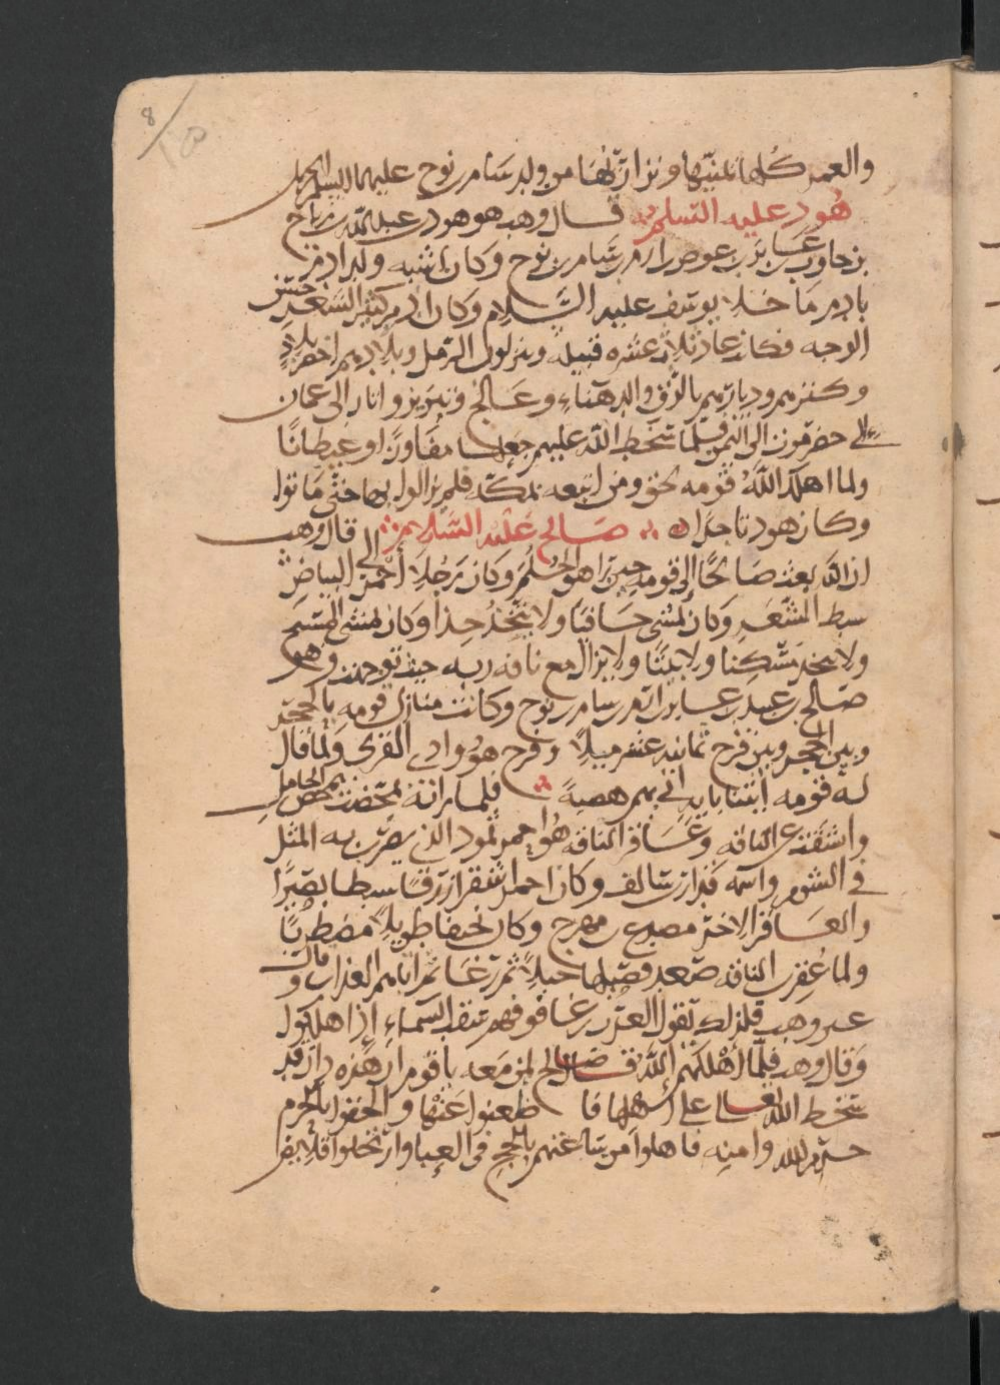 8
والعرب كلها يمنيها ونزاريها من ولد سام بن نوح عليهما السلم
هود عليه السلم قال وهب هو هود بن عبد الله بن رباح
بن حاوب بن عاد بن عوص بن ارم بن سام بن نوح وكان اشبه ولد ادم
بادم ما خلا يوسف عليه السلام وكان ادم كثير الشعر حسن
الوجه فكانت عاد ثلاث عشره قبيله ينزلون الرمل وبلادهم اخصب بلاد
وكثرهم وديارهم بالدو والدهناء وعالج ويبرين وبار الى عمان
الى حضرموت الى اليمن فلما سخط الله عليهم جعلها مفاوز او غيطانا
ولما اهلك الله قومه لحق ومن اتبعه بمكه فلم يزالوا بها حتى ماتوا
وكان هود تاجرا صالح عليه السلام قال وهب
ان الله بعث صالحا الى قومه حين راهق الحلم وكان رجلا احمر الى البياض
سبط الشعر وكان يمشي حافيا ولا يتخذ حذا وكان يمشي المسيح
ولا يتخذ مسكنا ولا بيتا ولا يزال مع ناقه ربه حيث توجهت وهو
صالح بن عبيد بن عابر بن ارم بن سام بن نوح وكانت منازل قومه بالحجر
وبين الحجر وبين قرح ثمانيه عشر ميلا وقرح هو وادي القرى ولما قال
له قومه ائتنا بايه اتى بهم هضبة فلما راته تمخضت تمخض الحامل
وانشقت عن الناقه وعاقر الناقه هو احمر ثمود الذي يضرب به المثل
في الشوم واسمه قدار بن سالف وكان احمر اشقر ازرق سبطا قصيرا
والعاقر الاخر مصدع بن مهرج وكان نحيفا طويلا مضطربا
ولما عقرت الناقه صعد فصيلها جبلا ثم رغا ثم اتاهم العذاب قال و
عن وهب فلذلك تقول العرب رغا فوقهم سقب السماء اذا هلكوا
وقال وهب فلما اهلكهم الله قال صالح لمن معه يا قوم ان هذه دار قد
سخط الله تعالى على اهلها فاظعنوا عنها والحقوا بالحرم
حرم الله وامنه فاهلوا من ساعتهم بالحج في العبا وارتحلوا